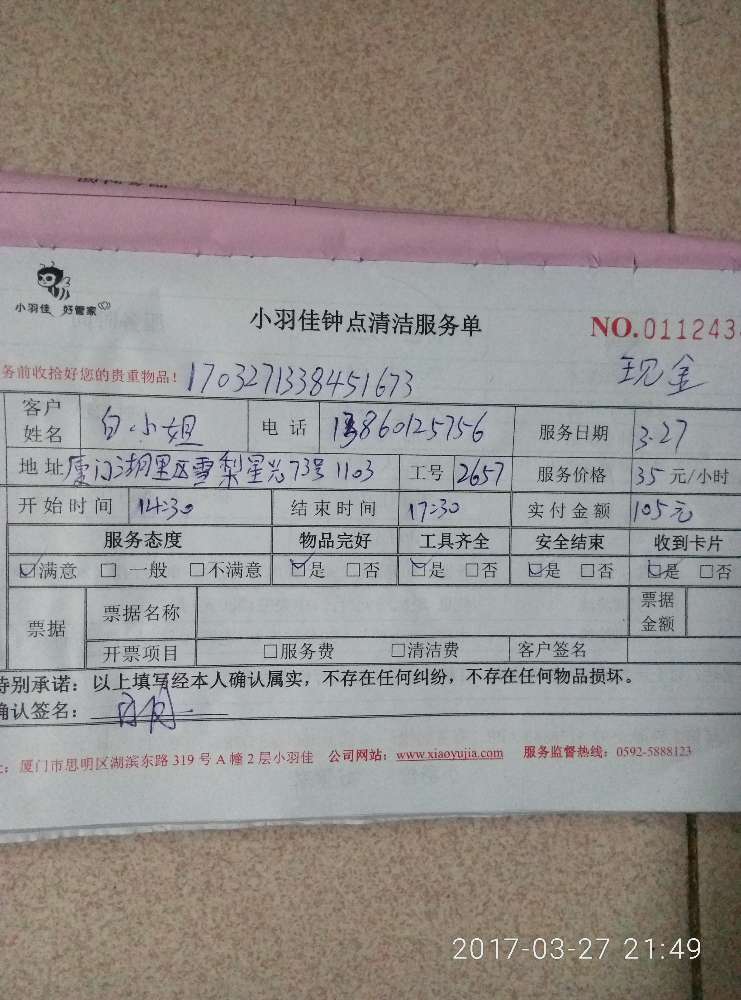 小羽佳 好管家
小羽佳钟点清洁服务单 NO.011243
现金
务前收拾好您的贵重物品! 1703271338451673
客户姓名 白小姐 电话 13860125756 服务日期 3.27
地址 厦门湖里区雪梨星光73号1103 工号 2657 服务价格 35 元/小时
开始时间 14:30 结束时间 17:30 实付金额 105元
服务态度 物品完好 工具齐全 安全结束 收到卡片
☑满意 □一般 □不满意 ☑是 □否 ☑是 □否 ☑是 □否 ☑是 □否
票据 票据名称 票据金额
开票项目 □服务费 □清洁费 客户签名
特别承诺：以上填写经本人确认属实，不存在任何纠纷，不存在任何物品损坏。
确认签名：
厦门市思明区湖滨东路319号A幢2层小羽佳 公司网站：www.xiaoyujia.com 服务监督热线：0592-5888123
2017-03-27 21:49